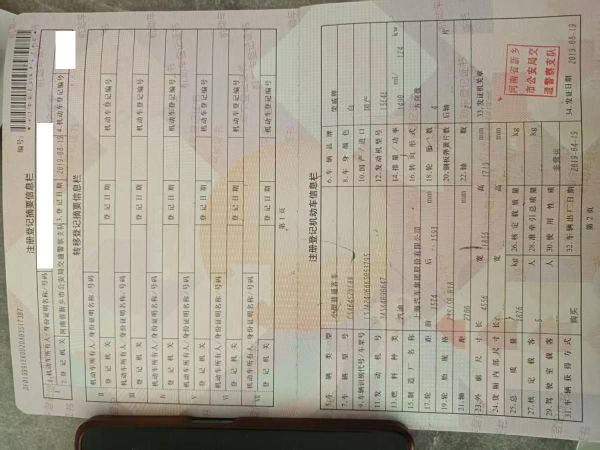 编号:
注册登记摘要信息栏
1.机动车所有人/身份证明名称/号码
2.登记机关 河南省新乡市公安局交通警察支队 3.登记日期 2019-08-19 4.机动车登记编号
转移登记摘要信息栏
机动车所有人/身份证明名称/号码
II 登记机关 登记日期 机动车登记编号
机动车所有人/身份证明名称/号码
III 登记机关 登记日期 机动车登记编号
机动车所有人/身份证明名称/号码
IV 登记机关 登记日期 机动车登记编号
机动车所有人/身份证明名称/号码
V 登记机关 登记日期 机动车登记编号
机动车所有人/身份证明名称/号码
VI 登记机关 登记日期 机动车登记编号
机动车所有人/身份证明名称/号码
VII 登记机关 登记日期 机动车登记编号
第1页
注册登记机动车信息栏
5.车辆类型 小型普通客车 6.车辆品牌 荣威牌
7.车辆型号 8.车身颜色 白
9.车辆识别代号/车架号 10.国产/进口 国产
11.发动机号 12.发动机型号 15E4E
13.燃料种类 汽油 14.排量/功率 1490 ml/ 124 kw
15.制造厂名称 上海汽车集团股份有限公司 16.转向形式 方向盘
17.轮距 前 1574 后 1593 mm 18.轮胎数 4
19.轮胎规格 20.钢板弹簧片数 后轴 片
21.轴距 2700 mm 22.轴数 2
23.外廓尺寸 长 4556 宽 1855 高 1719 mm 33.发证机关章
24.货厢内部尺寸 长 宽 高 mm
25.总质量 kg 26.核定载质量 kg
27.核定载客 5 人 28.准牵引总质量 kg
29.驾驶室载客 人 30.使用性质 非营运
31.车辆获得方式 购买 32.车辆出厂日期 2019-04-19 34.发证日期 2019-08-19
河南省新乡
市公安局交
通警察支队
第2页